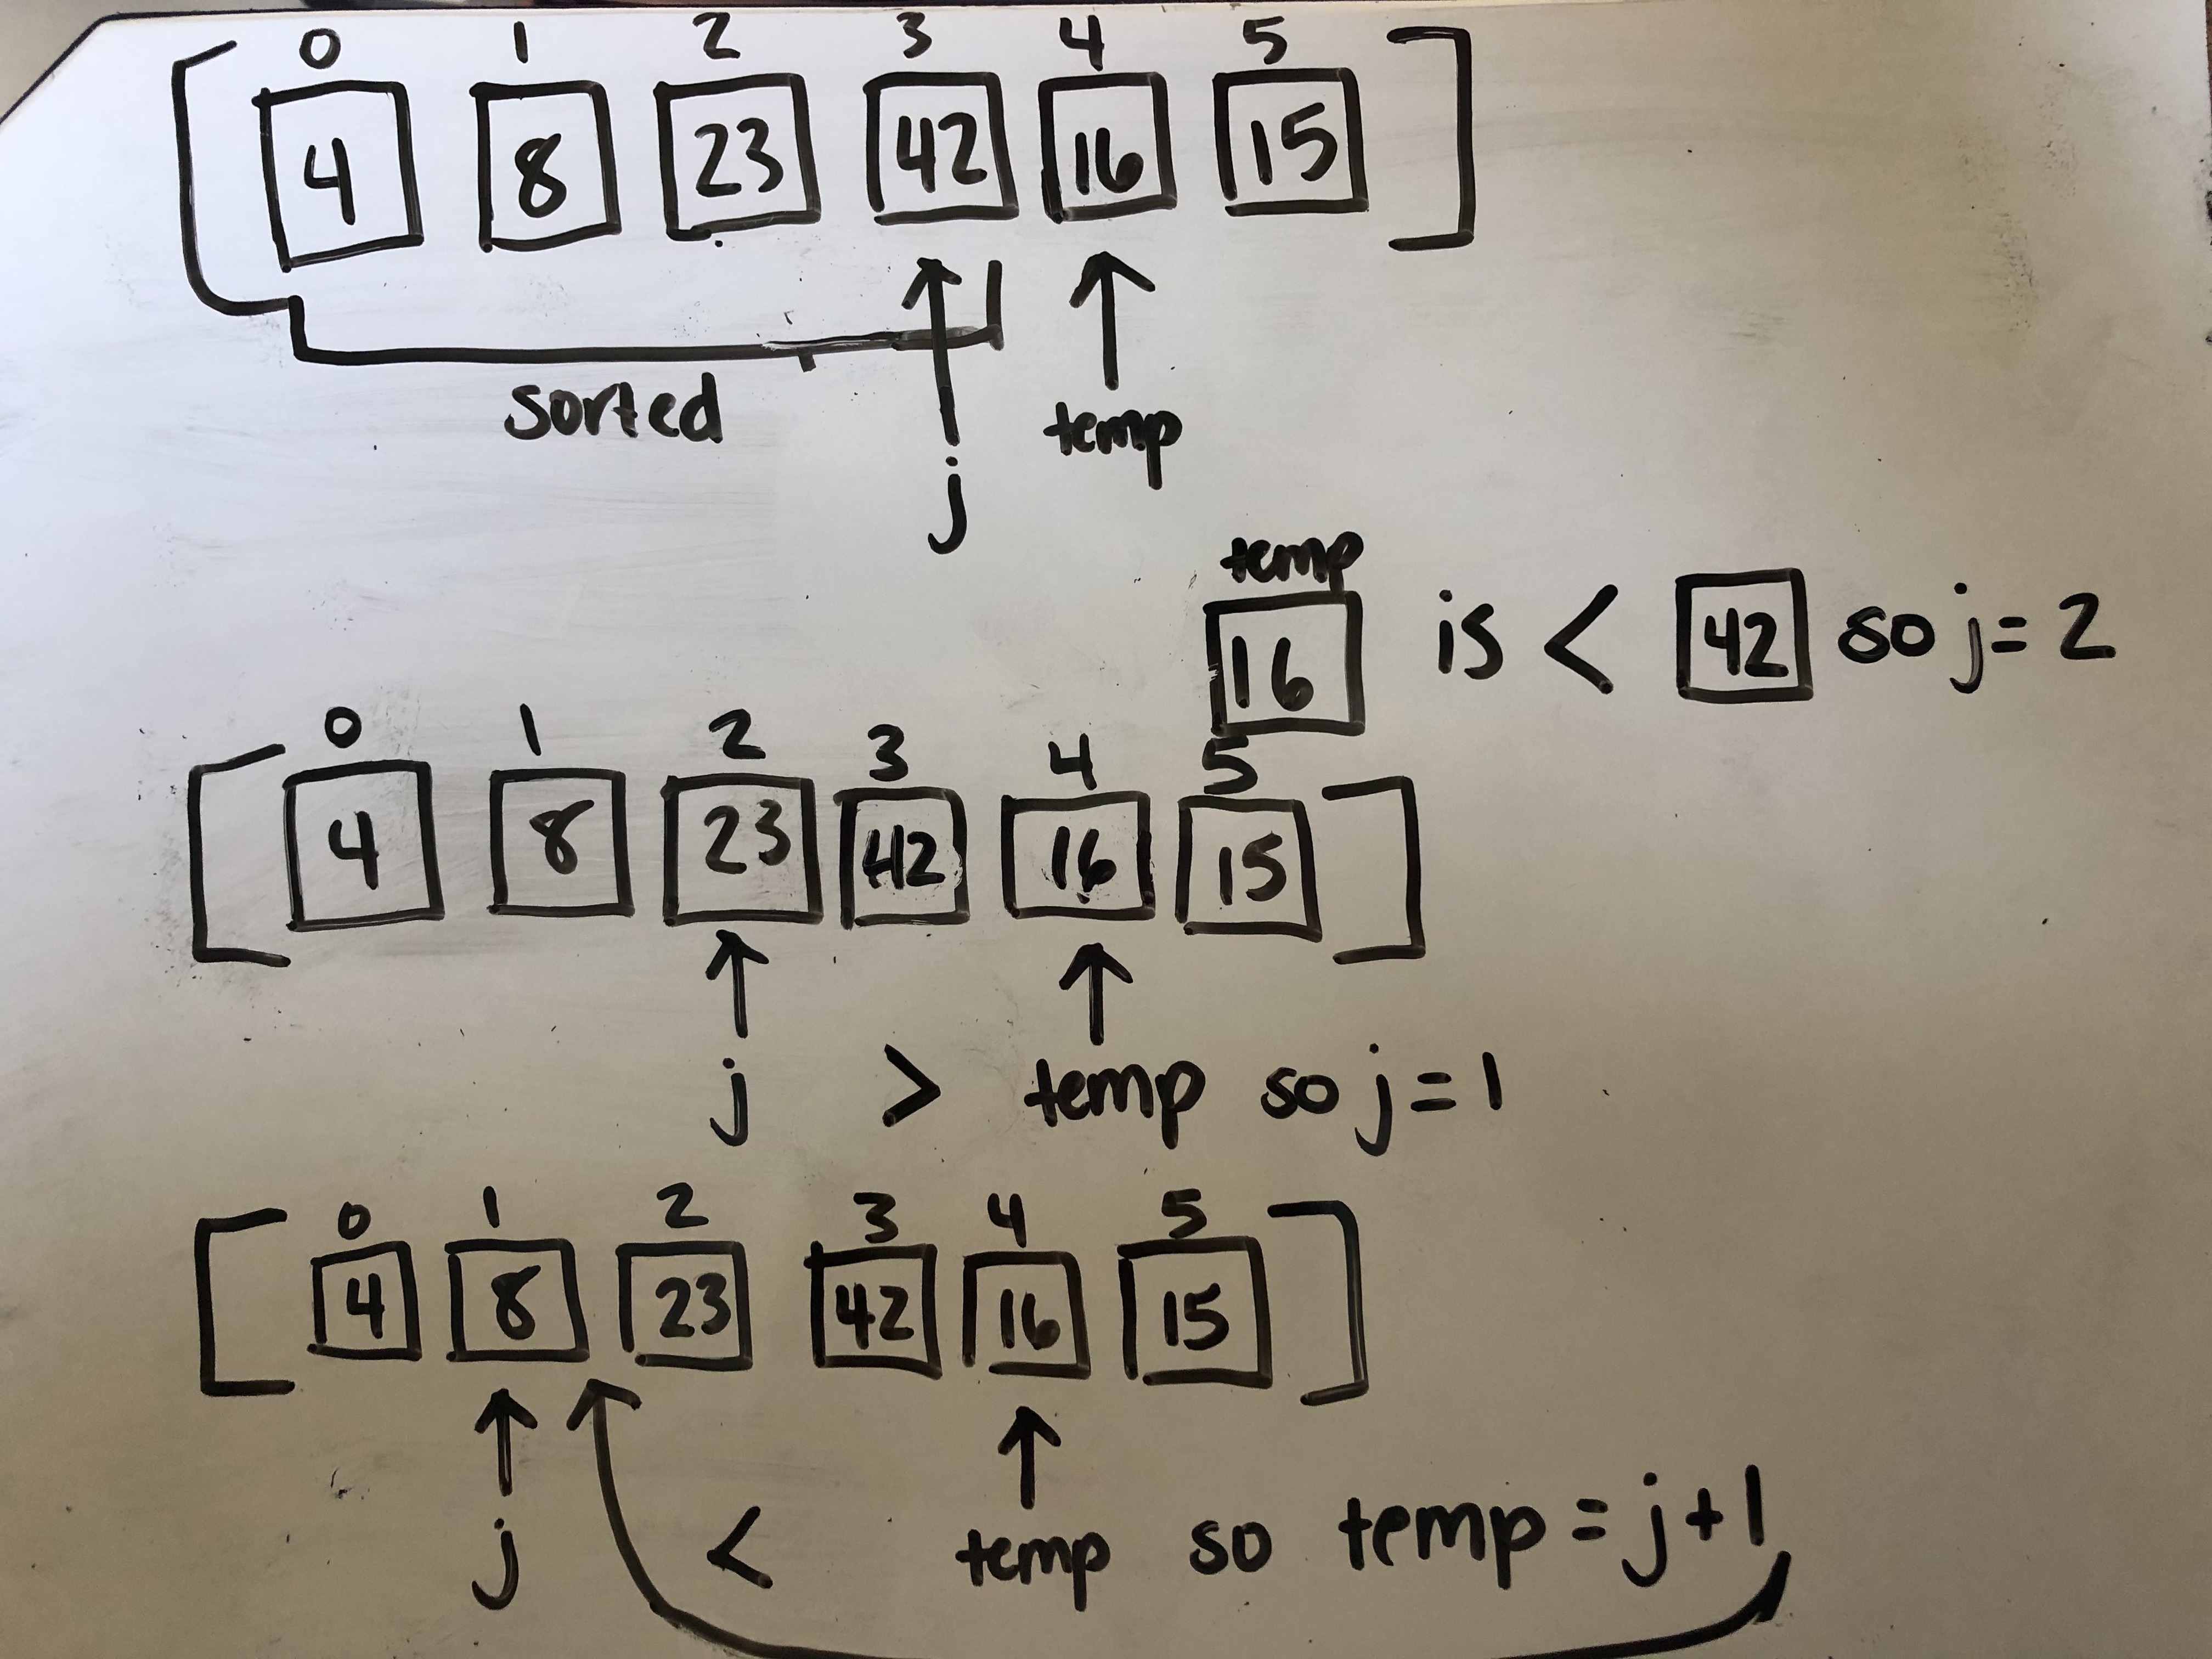 0 1 2 3 4 5
[ 4 8 23 42 16 15 ]
sorted
temp
j
temp
16 is < 42 so j = 2
0 1 2 3 4 5
[ 4 8 23 42 16 15 ]
j > temp so j = 1
0 1 2 3 4 5
[ 4 8 23 42 16 15 ]
j < temp so temp = j + 1